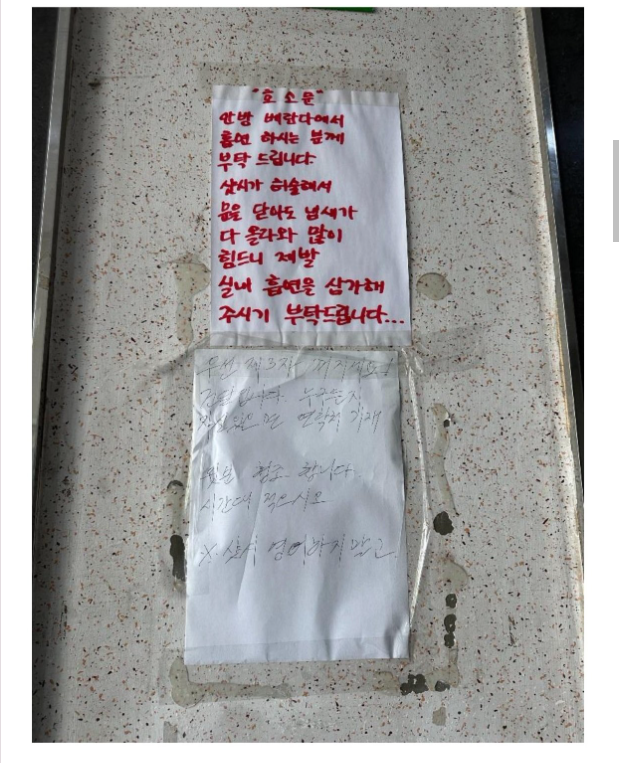 "호소문"
안방 베란다에서
흡연 하시는 분께
부탁 드립니다
샷시가 허술해서
문을 닫아도 냄새가
다 올라와 많이
힘드니 제발
실내 흡연을 삼가해
주시기 부탁드립니다...
우선 제3자
누구든지
있으면 연락처 기재
협조 합니다.
시간대 적으시오